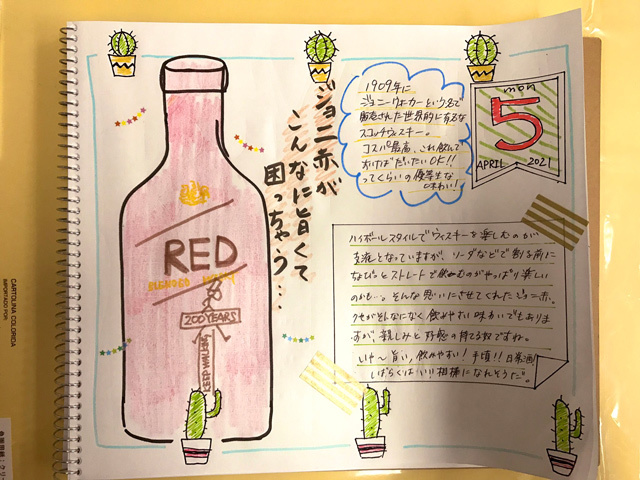 ジョニ赤が
こんなに旨くて
困っちゃう…
1909年に
ジョニーウォーカーという名で
販売された世界的に有名な
スコッチウィスキー。
コスパ最高、これ飲んで
おけばだいたいOK!!
ってくらいの優等生な
味わい!
mon
5
APRIL 2021
RED
BLENDED
200YEARS
KEEP WALKING
ハイボールスタイルでウィスキーを楽しむのが
主流となっていますが、ソーダなどで割る前に
ちびっとストレートで飲むのがやっぱり楽しい
のかも…。そんな思いにさせてくれたジョニ赤。
クセがそんなになく飲みやすい味わいでもありま
すが、親しみと好感の持てる奴ですね。
いや〜旨い、飲みやすい!手頃!!日常酒
しばらくはいい相棒になれそうだ。
CARTOLINA COLORIDA
IMPORTADO POR: